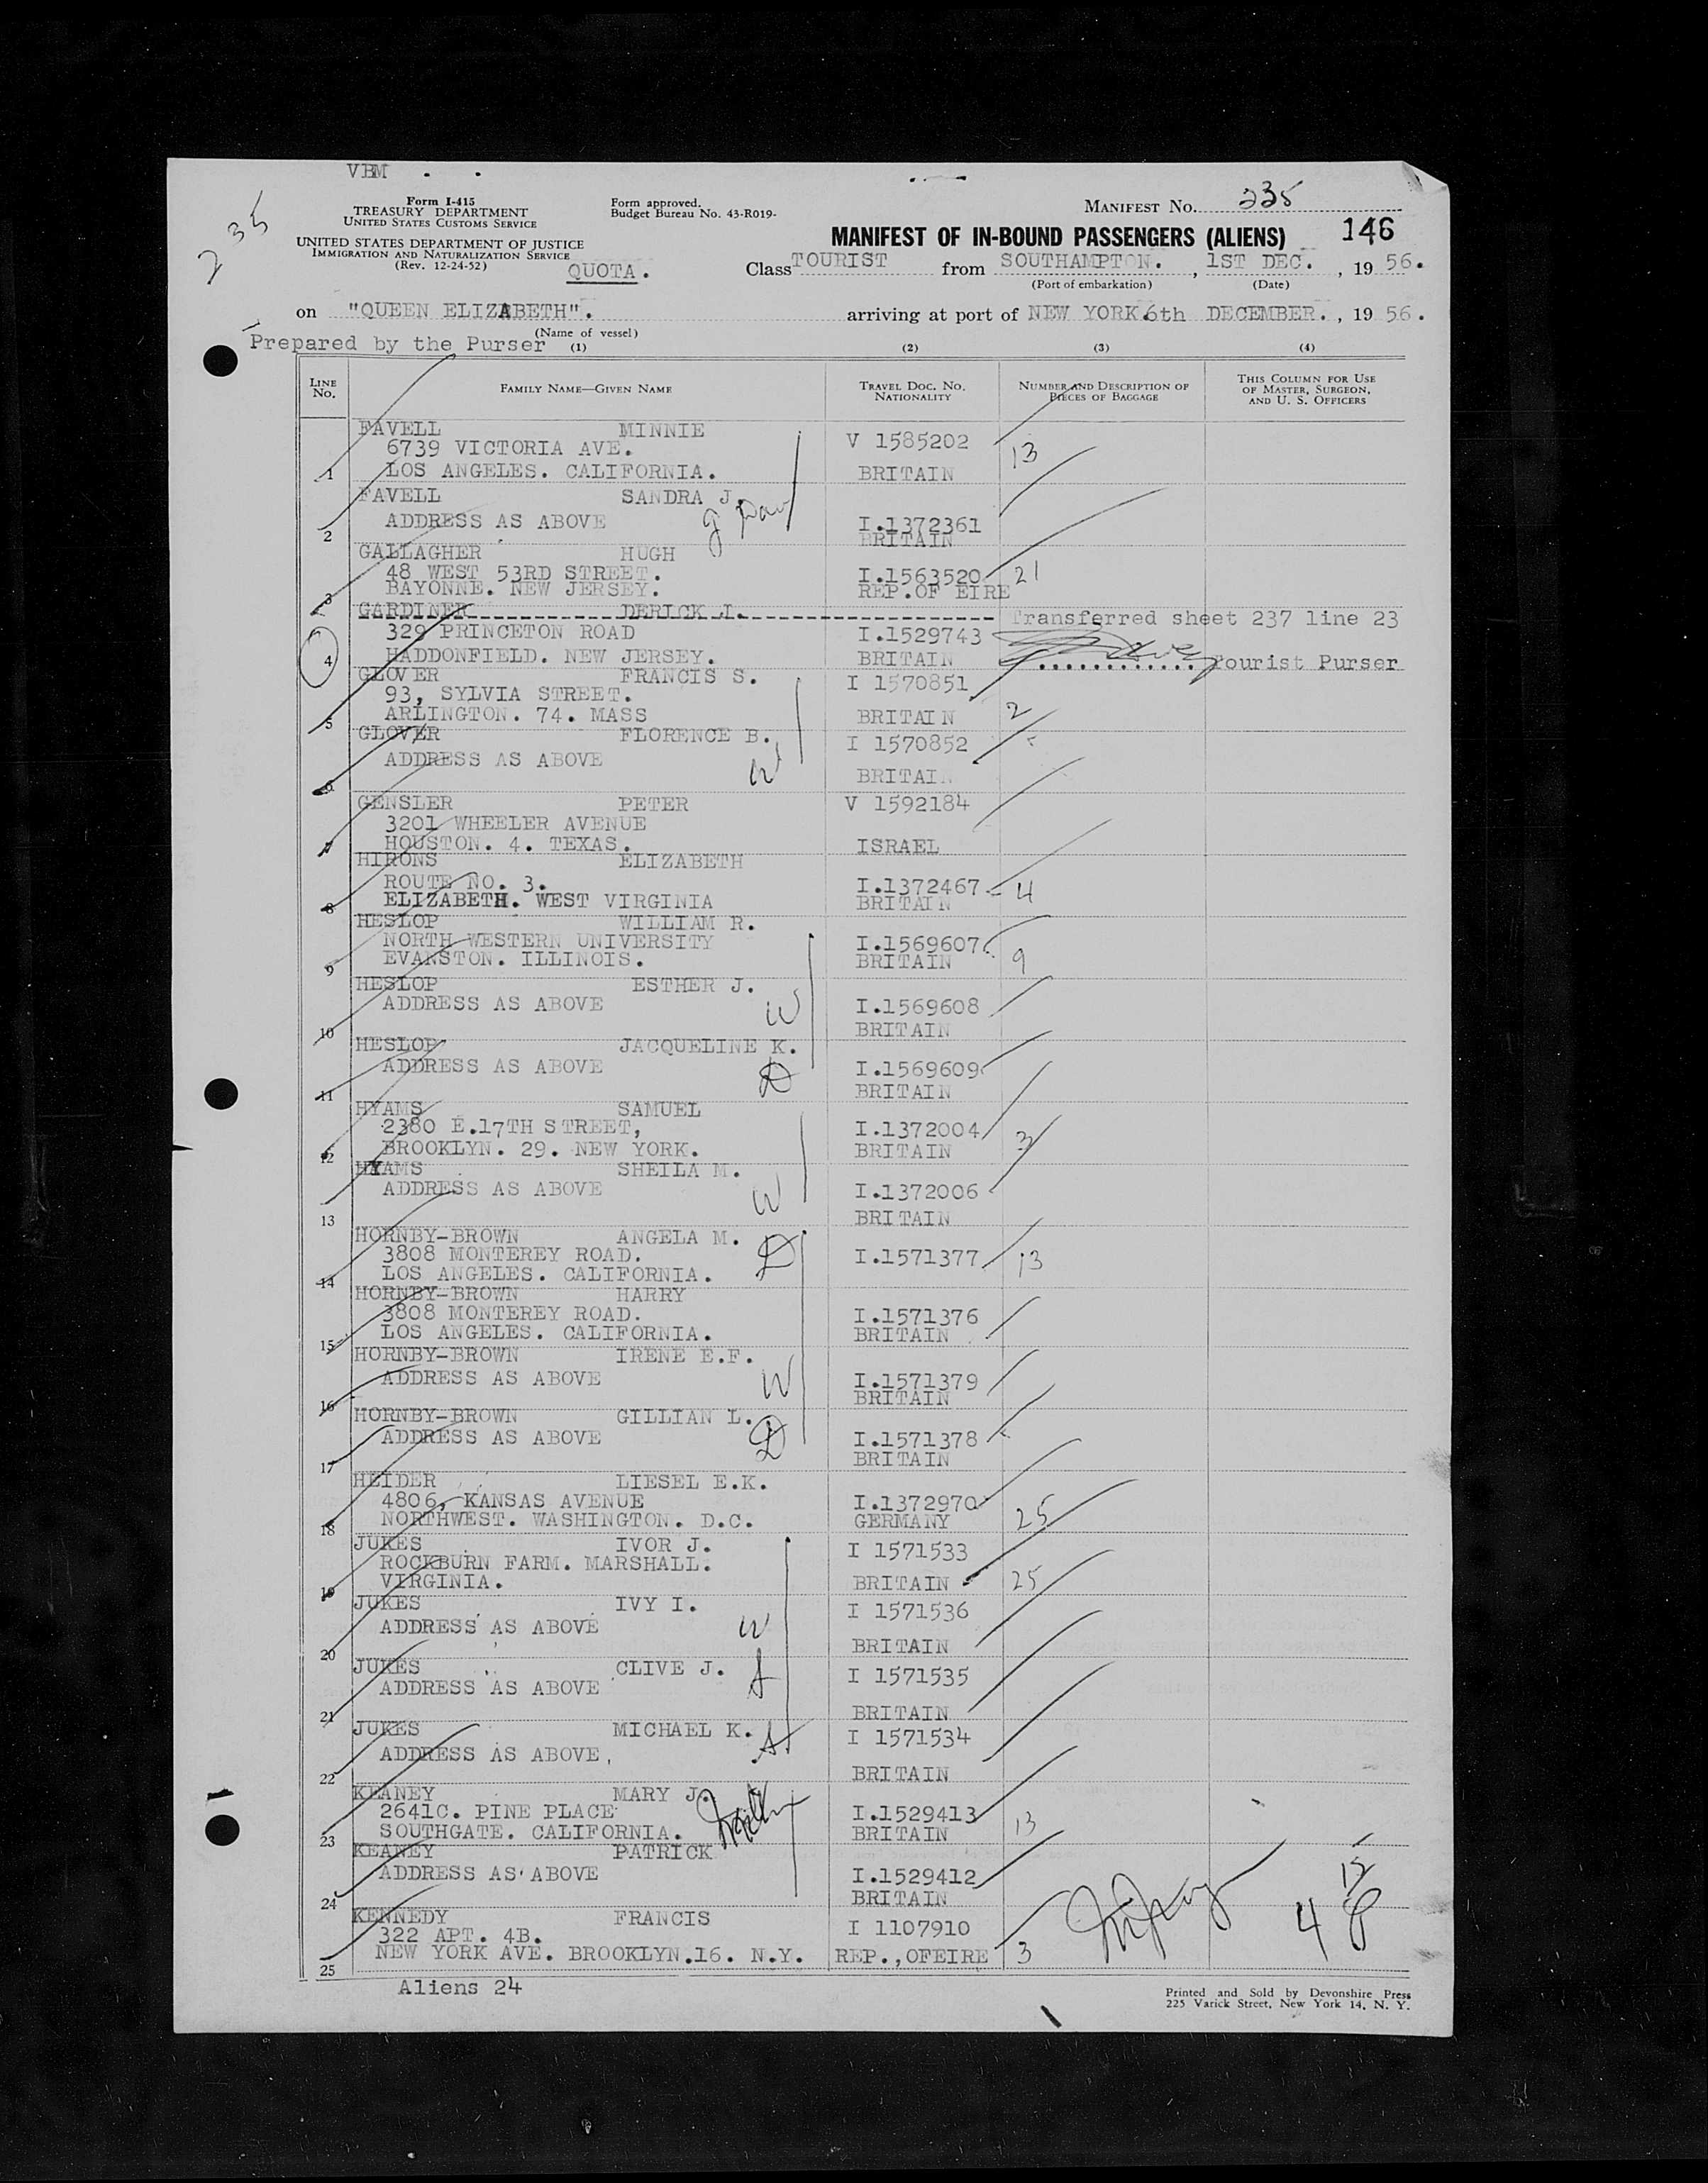 VBM
235
Form I-415
TREASURY DEPARTMENT
UNITED STATES CUSTOMS SERVICE
UNITED STATES DEPARTMENT OF JUSTICE
IMMIGRATION AND NATURALIZATION SERVICE
(Rev. 12-24-52)
Form approved.
Budget Bureau No. 43-R019-
MANIFEST NO. 235
MANIFEST OF IN-BOUND PASSENGERS (ALIENS) 146
QUOTA. Class TOURIST from SOUTHAMPTON. , 1ST DEC. , 19 56.
(Port of embarkation) (Date)
on "QUEEN ELIZABETH". arriving at port of NEW YORK.6th DECEMBER. , 19 56.
(Name of vessel)
Prepared by the Purser (1) (2) (3) (4)
LINE NO. FAMILY NAME—GIVEN NAME TRAVEL DOC. NO. NATIONALITY NUMBER AND DESCRIPTION OF PIECES OF BAGGAGE THIS COLUMN FOR USE OF MASTER, SURGEON, AND U. S. OFFICERS
FAVELL MINNIE
6739 VICTORIA AVE. V 1585202 13
1 LOS ANGELES. CALIFORNIA. BRITAIN
FAVELL SANDRA J.
ADDRESS AS ABOVE I.1372361
2 BRITAIN
GALLAGHER HUGH
48 WEST 53RD STREET. I.1563520 21
3 BAYONNE. NEW JERSEY. REP.OF EIRE
GARDINER DERICK J. Transferred sheet 237 line 23
329 PRINCETON ROAD I.1529743
4 HADDONFIELD. NEW JERSEY. BRITAIN Tourist Purser
GLOVER FRANCIS S. I 1570851
93, SYLVIA STREET.
5 ARLINGTON. 74. MASS BRITAIN 2
GLOVER FLORENCE B. I 1570852
ADDRESS AS ABOVE W
6 BRITAIN
GENSLER PETER V 1592184
3201 WHEELER AVENUE
7 HOUSTON. 4. TEXAS. ISRAEL
HIRONS ELIZABETH
ROUTE NO. 3. I.1372467 4
8 ELIZABETH. WEST VIRGINIA BRITAIN
HESLOP WILLIAM R.
NORTH WESTERN UNIVERSITY I.1569607
9 EVANSTON. ILLINOIS. BRITAIN 9
HESLOP ESTHER J.
ADDRESS AS ABOVE W I.1569608
10 BRITAIN
HESLOP JACQUELINE K.
ADDRESS AS ABOVE D I.1569609
11 BRITAIN
HYAMS SAMUEL
2380 E.17TH STREET, I.1372004 3
12 BROOKLYN. 29. NEW YORK. BRITAIN
HYAMS SHEILA M.
ADDRESS AS ABOVE W I.1372006
13 BRITAIN
HORNBY-BROWN ANGELA M. D
3808 MONTEREY ROAD. I.1571377 13
14 LOS ANGELES. CALIFORNIA.
HORNBY-BROWN HARRY
3808 MONTEREY ROAD. I.1571376
15 LOS ANGELES. CALIFORNIA. BRITAIN
HORNBY-BROWN IRENE E.F.
ADDRESS AS ABOVE W I.1571379
16 BRITAIN
HORNBY-BROWN GILLIAN L.
ADDRESS AS ABOVE D I.1571378
17 BRITAIN
HEIDER LIESEL E.K.
4806, KANSAS AVENUE I.1372970
18 NORTHWEST. WASHINGTON. D.C. GERMANY 25
JUKES IVOR J. I 1571533
ROCKBURN FARM. MARSHALL.
19 VIRGINIA. BRITAIN 25
JUKES IVY I. I 1571536
ADDRESS AS ABOVE W
20 BRITAIN
JUKES CLIVE J. I 1571535
ADDRESS AS ABOVE
21 BRITAIN
JUKES MICHAEL K. I 1571534
ADDRESS AS ABOVE,
22 BRITAIN
KEANEY MARY J.
2641C. PINE PLACE I.1529413
23 SOUTHGATE. CALIFORNIA. BRITAIN 13
KEANEY PATRICK
ADDRESS AS ABOVE I.1529412
24 BRITAIN
KENNEDY FRANCIS I 1107910
322 APT. 4B.
25 NEW YORK AVE. BROOKLYN.16. N.Y. REP.,OFEIRE 3
Aliens 24
Printed and Sold by Devonshire Press
225 Varick Street, New York 14, N. Y.